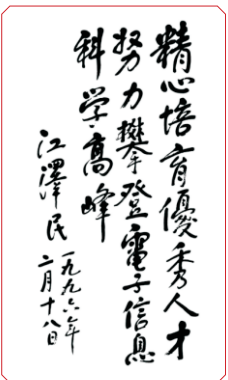 精心培育優秀人才
努力攀登電子信息
科学高峰
江澤民
一九九六年
二月十八日